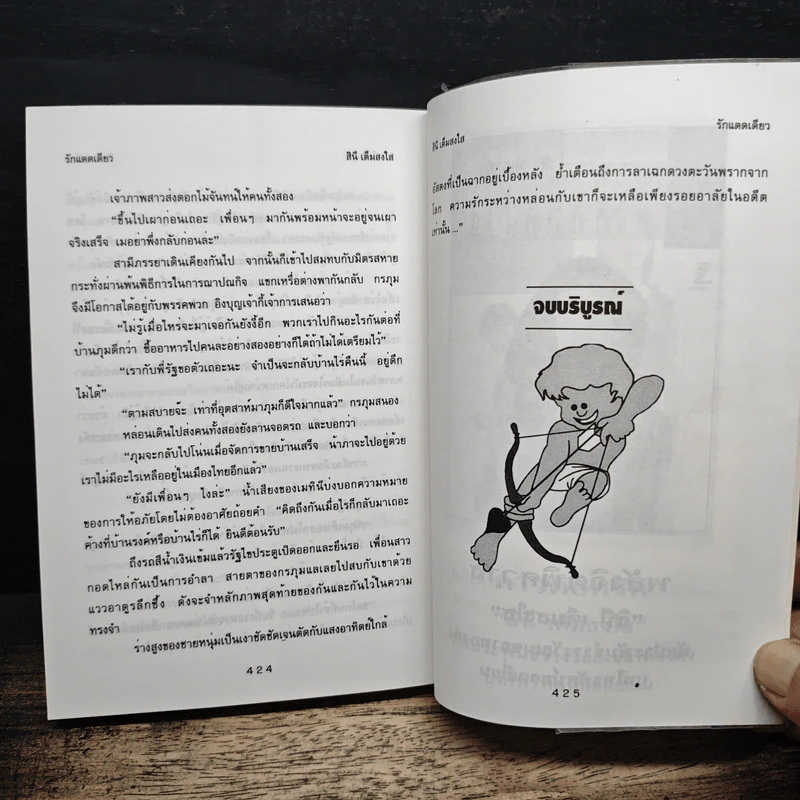 รักแดดเดียว
สินี เต็มสงใส
เจ้าภาพสาวส่งดอกไม้จันทน์ให้คนทั้งสอง
“ขึ้นไปเผาก่อนเถอะ เพื่อนๆ มากันพร้อมหน้าจะอยู่จนเผา
จริงเสร็จ เมอย่าพึ่งกลับก่อนล่ะ”
สามีภรรยาเดินเคียงกันไป จากนั้นก็เข้าไปสมทบกับมิตรสหาย
กระทั่งผ่านพ้นพิธีการในการฌาปนกิจ แขกเหรื่อต่างพากันกลับ กรภุม
จึงมีโอกาสได้อยู่กับพรรคพวก อิงบุญเจ้ากี้เจ้าการเสนอว่า
“ไม่รู้เมื่อไหร่จะมาเจอกันยังงี้อีก พวกเราไปกินอะไรกันต่อที่
บ้านภุมดีกว่า ซื้ออาหารไปคนละอย่างสองอย่างก็ได้ถ้าไม่ได้เตรียมไว้”
“เรากับพี่รัฐขอตัวเถอะนะ จำเป็นจะกลับบ้านไร่คืนนี้ อยู่ดึก
ไม่ได้”
“ตามสบายจ้ะ เท่าที่อุตสาห์มาภุมก็ดีใจมากแล้ว” กรภุมสนอง
หล่อนเดินไปส่งคนทั้งสองยังลานจอดรถ และบอกว่า
“ภุมจะกลับไปโน่นเมื่อจัดการขายบ้านเสร็จ น้าภาจะไปอยู่ด้วย
เราไม่มีอะไรเหลืออยู่ในเมืองไทยอีกแล้ว”
“ยังมีเพื่อนๆ ไงล่ะ” น้ำเสียงของเมทินีบ่งบอกความหมาย
ของการให้อภัยโดยไม่ต้องอาศัยถ้อยคำ “คิดถึงกันเมื่อไรก็กลับมาเถอะ
ค้างที่บ้านรงค์หรือบ้านไร่ก็ได้ ยินดีต้อนรับ”
ถึงรถสีน้ำเงินเข้มแล้วรัฐไขประตูเปิดออกและยืนรอ เพื่อนสาว
กอดไหล่กันเป็นการอำลา สายตาของกรภุมแลเลยไปสบกับเขาด้วย
แววอาดูรลึกซึ้ง ดังจะจำหลักภาพสุดท้ายของกันและกันไว้ในความ
ทรงจำ
ร่างสูงของชายหนุ่มเป็นเงาชัดชัดเจนตัดกับแสงอาทิตย์ใกล้
424
สินี เต็มสงใส
รักแดดเดียว
อัสดงที่เป็นฉากอยู่เบื้องหลัง ย้ำเตือนถึงการลาเฉกดวงตะวันพรากจาก
โลก ความรักระหว่างหล่อนกับเขาก็จะเหลือเพียงรอยอาลัยในอดีต
เท่านั้น ...”
จบบริบูรณ์
425